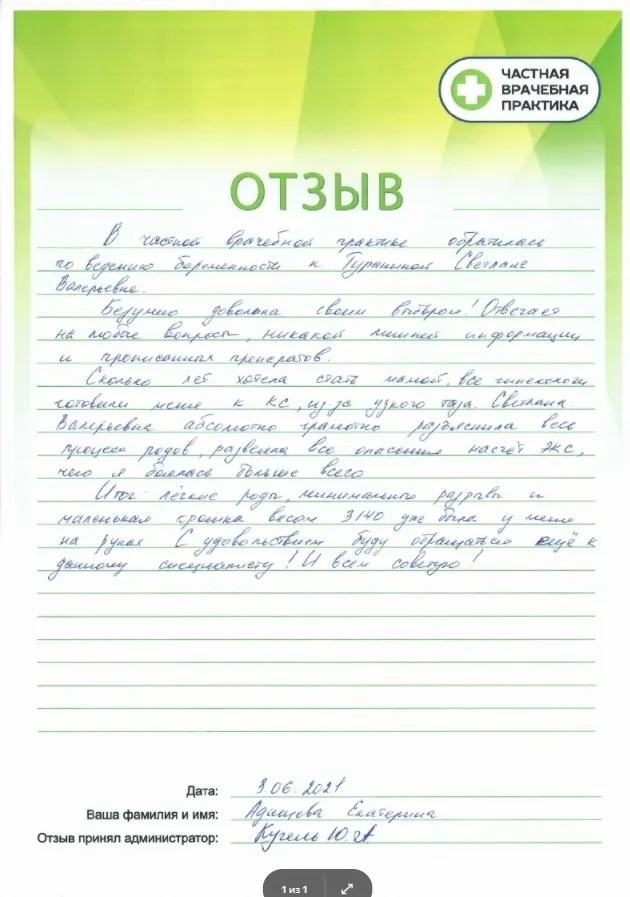 ЧАСТНАЯ
ВРАЧЕБНАЯ
ПРАКТИКА
ОТЗЫВ
В частной врачебной практике обратилась
по ведению беременности к Тураниной Светлане
Валерьевне.
Безумно довольна своим выбором! Отвечает
на любые вопросы, никакой лишней информации
и прописанных препаратов.
Сколько лет хотела стать мамой, все гинекологи
готовили меня к КС, из за узкого таза. Светлана
Валерьевна абсолютно грамотно разъяснила весь
процесс родов, развеяла все опасения насчёт ЭКС,
чего я боялась больше всего
Итог: лёгкие роды, минимально разрывы и
маленькая крошка весом 3140 уже была у меня
на руках С удовольствием буду обращаться ещё к
данному специалисту! И всем советую!
Дата: 3.06.2021
Ваша фамилия и имя: Екатерина
Отзыв принял администратор: Кугель Ю.А
1 из 1